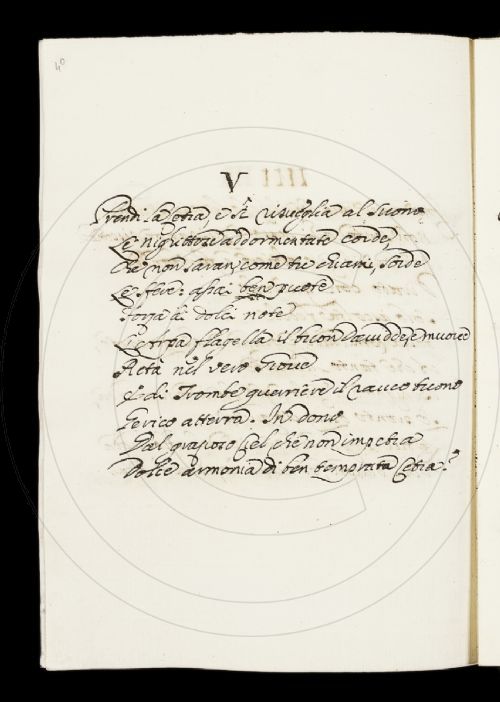 40
V
Prendi la Cetra, e sì risveglia al suono
Le nighittose addormentate corde,
Che non saran, come tu chiami, sorde
Le sfere: assai ben puote
forza di dolci note
Cetra flagella il biondo e muove
Metà nel vero Giove
E di Trombe guerriere il rauco tuono
Gerico atterra. In dono
Dal Ciel che non impetra
Dolce armonia di ben temprata Cetra?